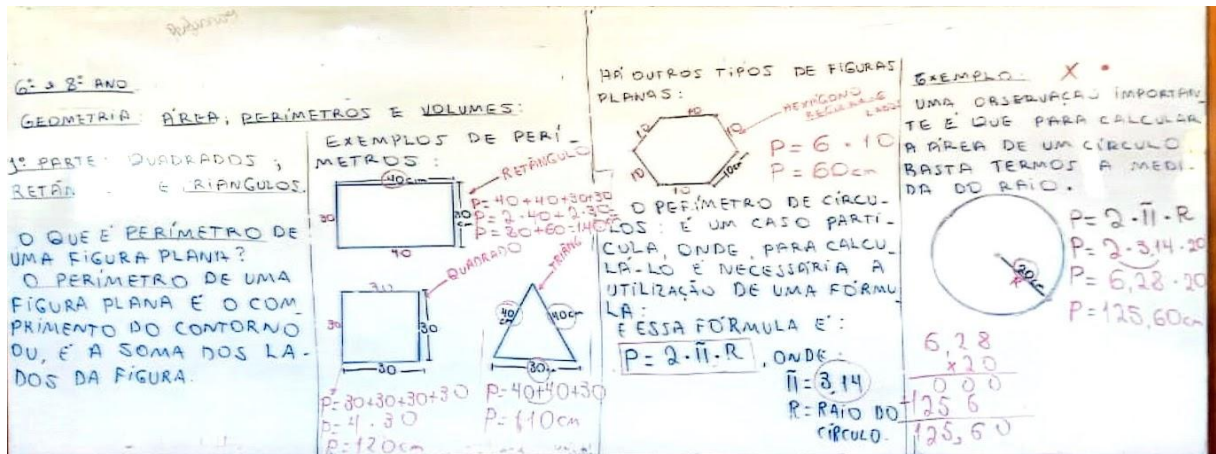 6º a 8º ANO
GEOMETRIA: ÁREA, PERÍMETROS E VOLUMES:
1º PARTE: QUADRADOS;
RETÂN E RIÂNGULOS.
O QUE É PERÍMETRO DE
UMA FIGURA PLANA?
O PERÍMETRO DE UMA
FIGURA PLANA É O COM-
PRIMENTO DO CONTORNO
OU, É A SOMA DOS LA-
DOS DA FIGURA.
EXEMPLOS DE PERÍ-
METROS:
RETÂNGULO
40cm
30
30
cm
40
P=40+40+30+30
P=2·40+2·30
P=80+60=140
QUADRADO
30
30
30
30
P=30+30+30+30
P=4·30
P=120cm
TRIÂNG
40
cm
40cm
30
P=40+40+30
P=110cm
HÁ OUTROS TIPOS DE FIGURAS
PLANAS:
HEXÁGONO
REGULAR 6
LADOS
10
10
10
10
10
10cm
P=6·10
P=60cm
O PERÍMETRO DE CÍRCU-
LOS: É UM CASO PARTI-
CULA, ONDE, PARA CALCU-
LÁ-LO É NECESSÁRIA A
UTILIZAÇÃO DE UMA FÓRMU
LA:
E ESSA FÓRMULA É:
P=2·π·R, ONDE:
π=3,14
R=RAIO DO
CÍRCULO.
EXEMPLO: X
UMA OBSERVAÇÃO IMPORTAN-
TE É QUE PARA CALCULAR
A ÁREA DE UM CÍRCULO
BASTA TERMOS A MEDI-
DA DO RAIO.
20cm
P=2·π·R
P=2·3,14·20
P=6,28·20
P=125,60cm
6,28
x20
000
+125 6
125,60